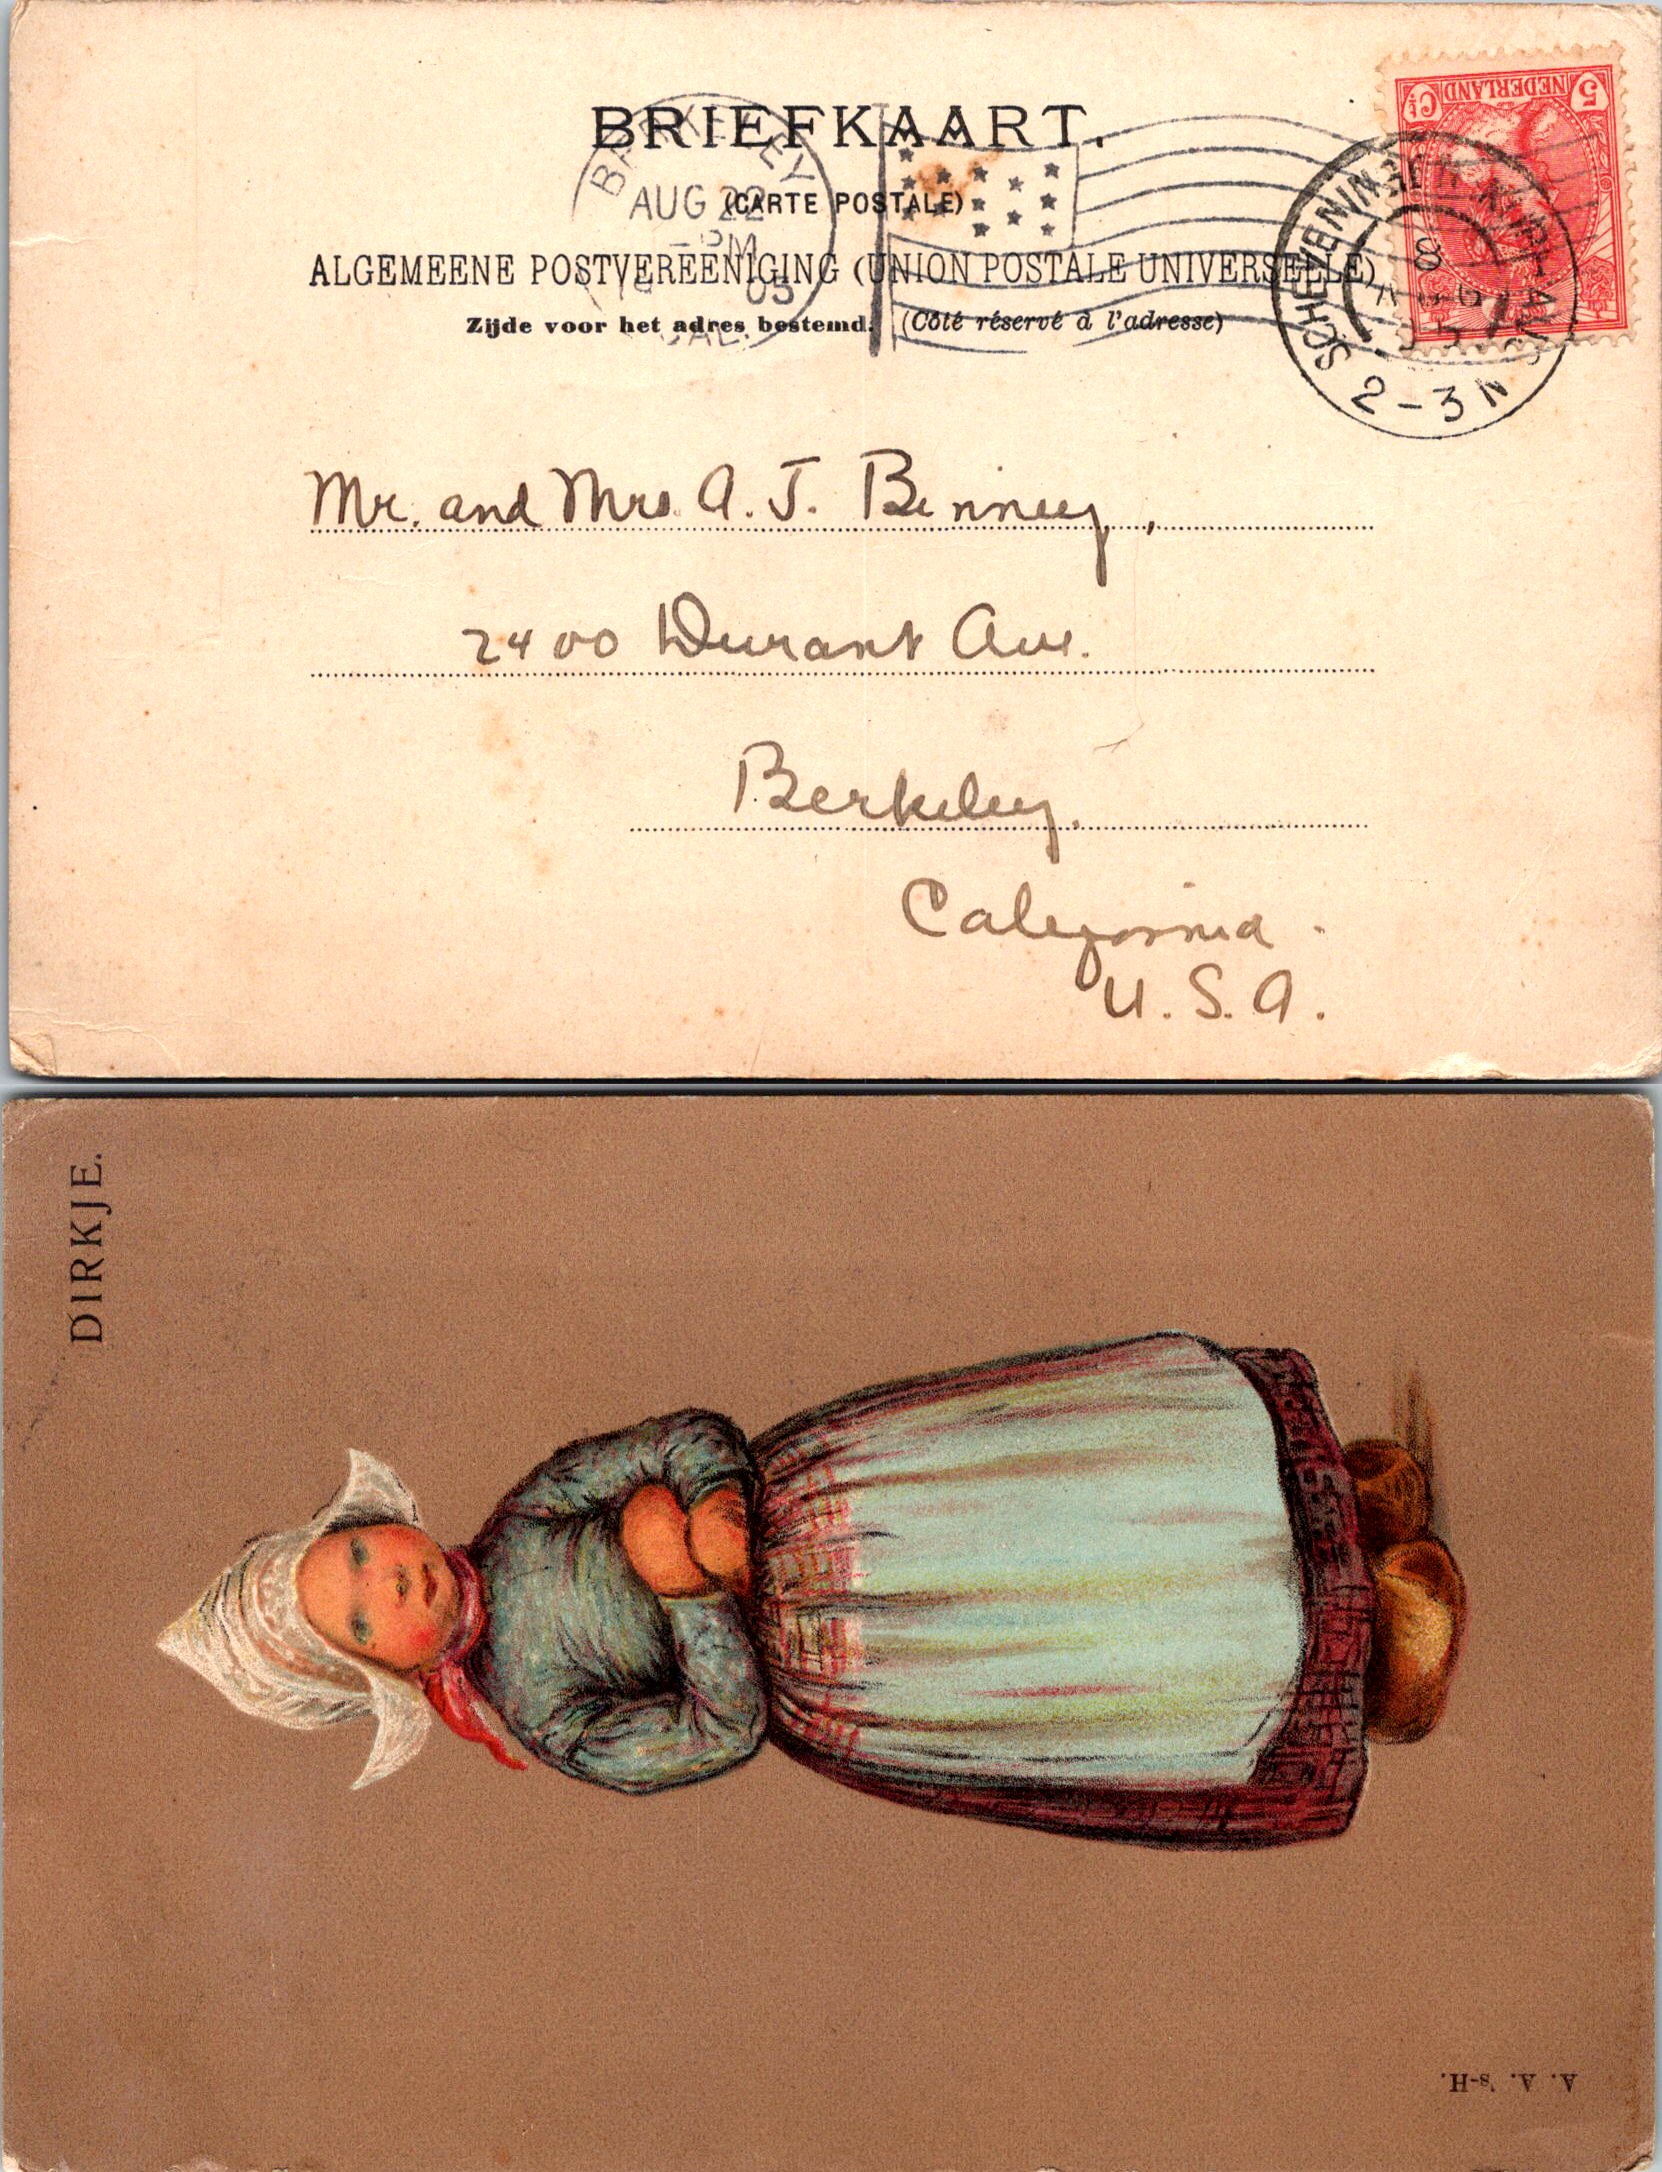 BRIEFKAART.
(CARTE POSTALE)
ALGEMEENE POSTVEREENIGING (UNION POSTALE UNIVERSELLE)
Zijde voor het adres bestemd. (Côté réservé à l'adresse)
BERKELEY
AUG 22
PM
05
CAL.
5 Ct NEDERLAND 5
SCHEVENINGEN
8
AUG
05
2-3N
Mr. and Mrs. A. J. Binney,
2400 Durant Ave.
Berkeley.
California.
U.S.A.
DIRKJE.
A. A. 's-H.